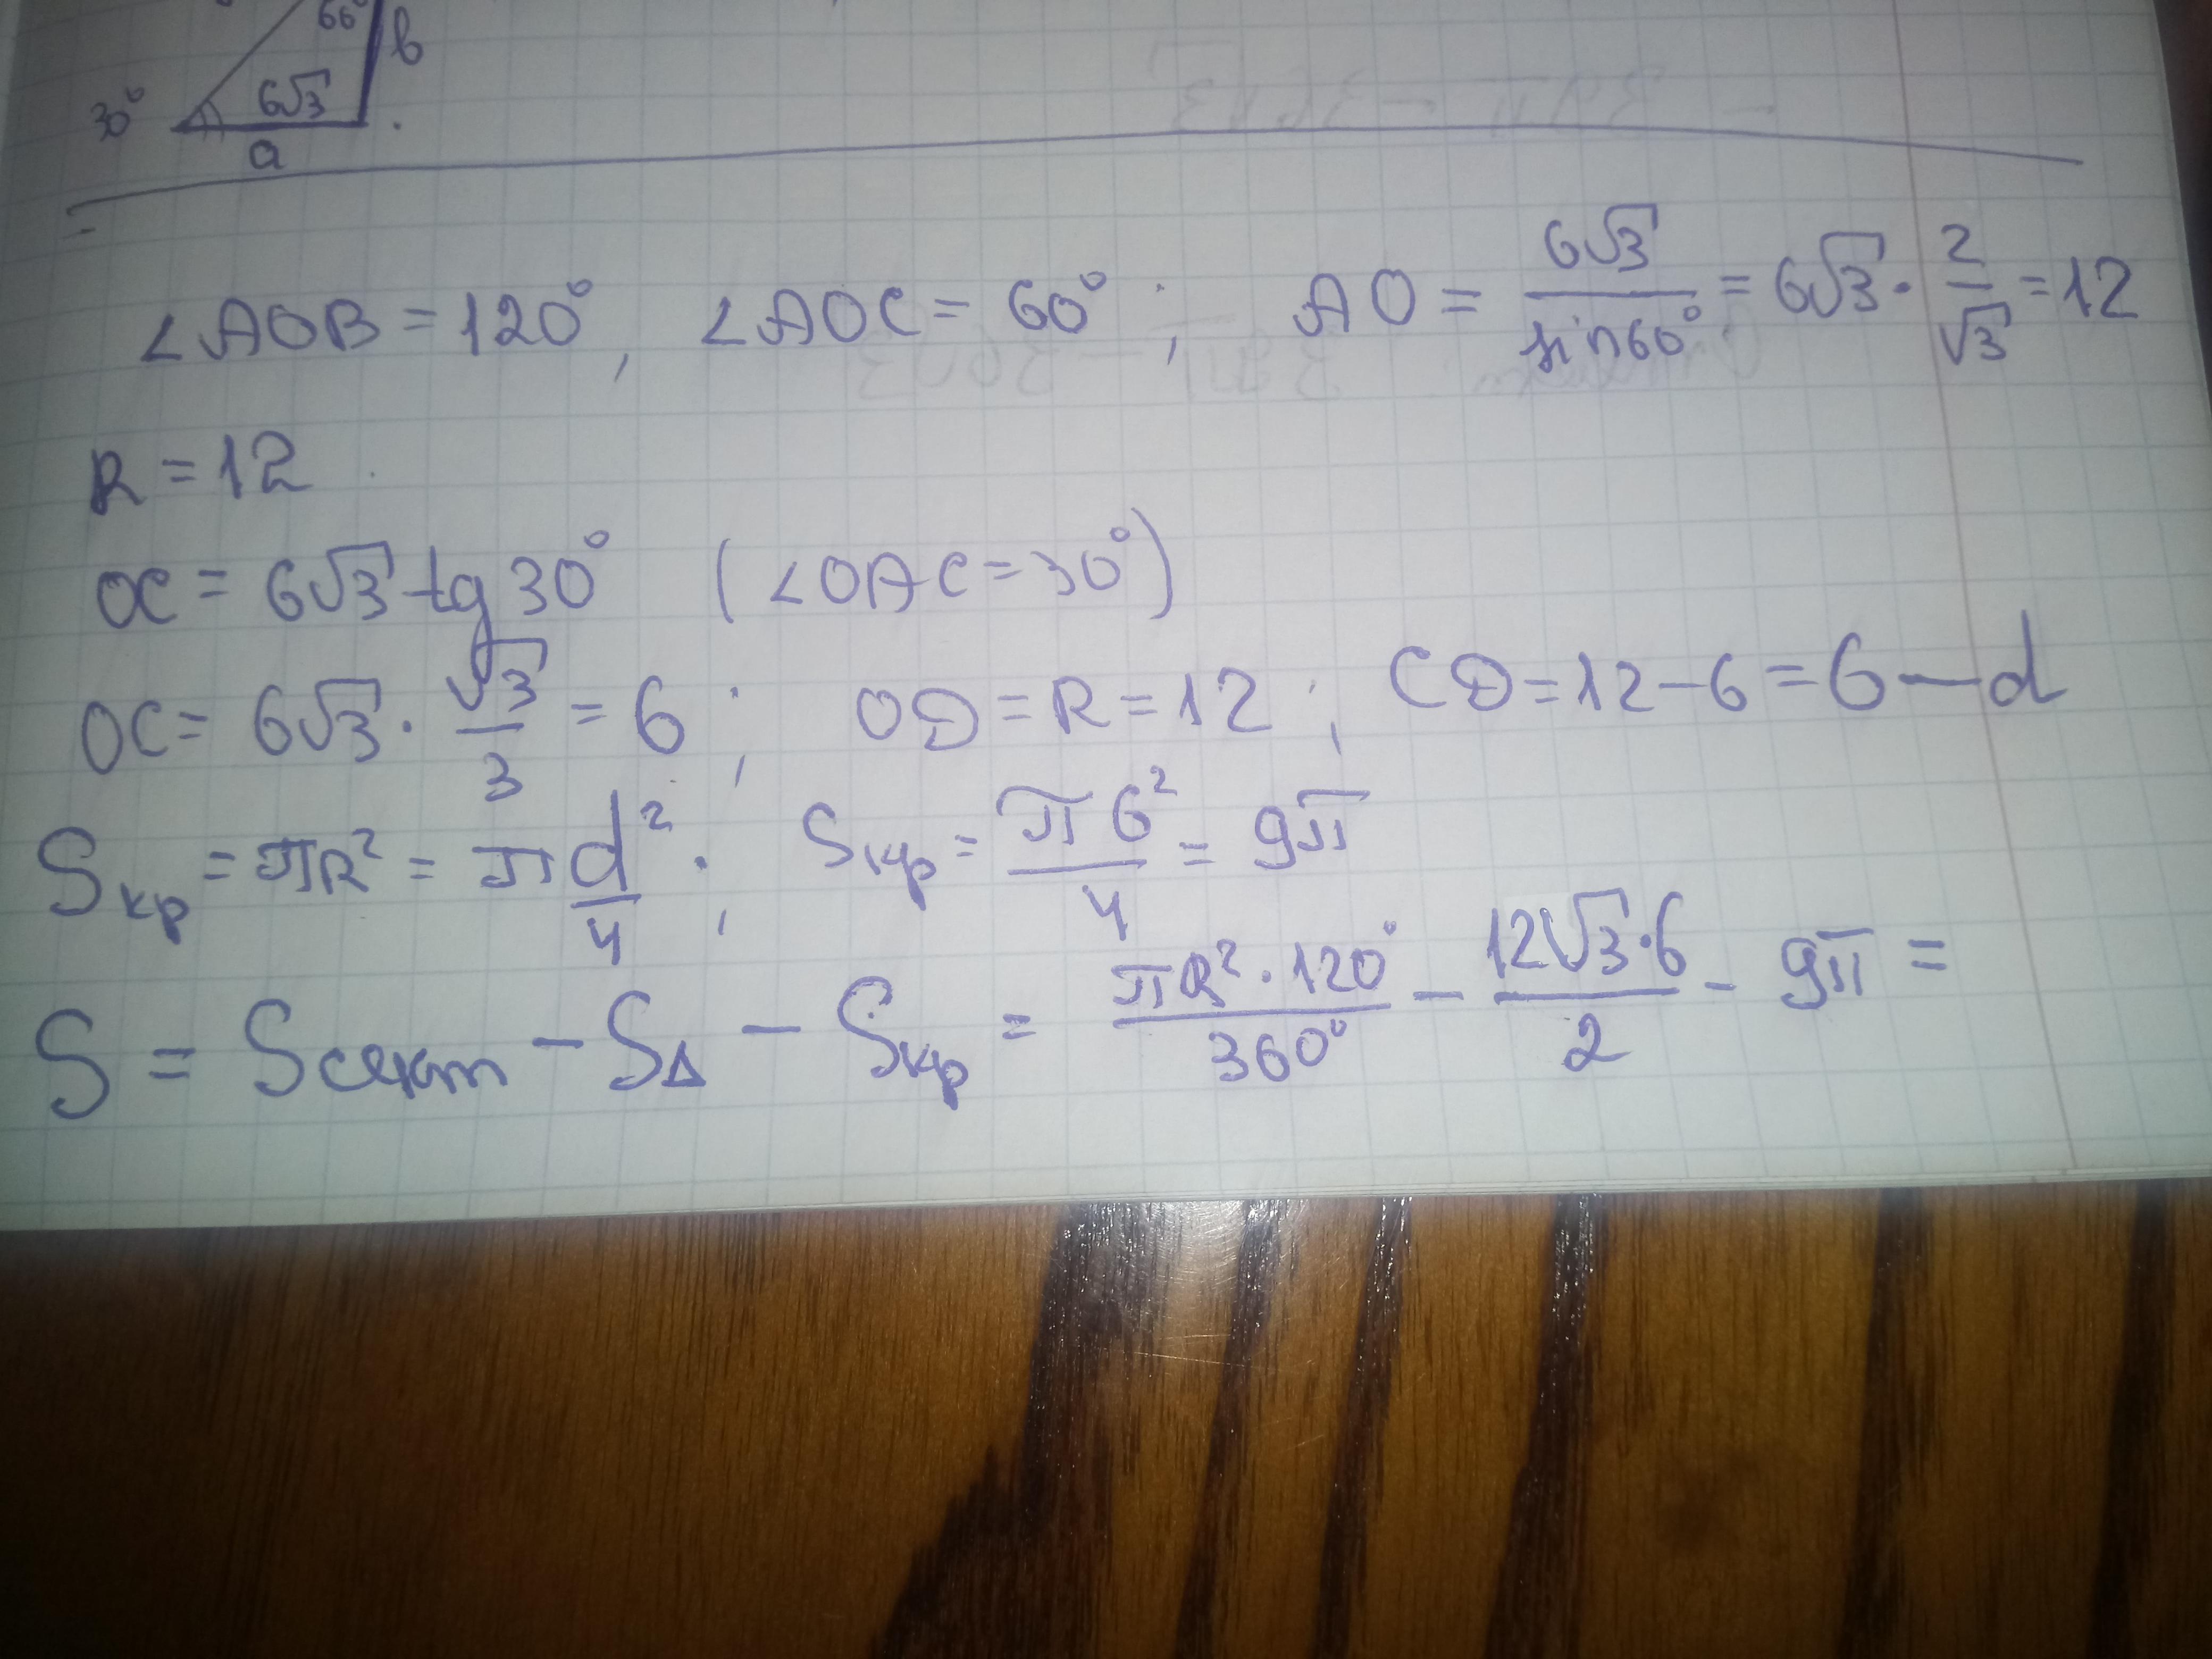 60° b
30° 6√3
a
∠AOB = 120°, ∠AOC = 60°; AO = 6√3/sin60° = 6√3 · 2/√3 = 12
R = 12
OC = 6√3 tg 30° (∠OAC = 30°)
OC = 6√3 · √3/3 = 6; OD = R = 12; CD = 12 - 6 = 6 — d
Sкр = πR² = πd²/4; Sкр = π6²/4 = 9π
S = Sсект - S∆ - Sкр = πR² · 120°/360° - 12√3·6/2 - 9π =